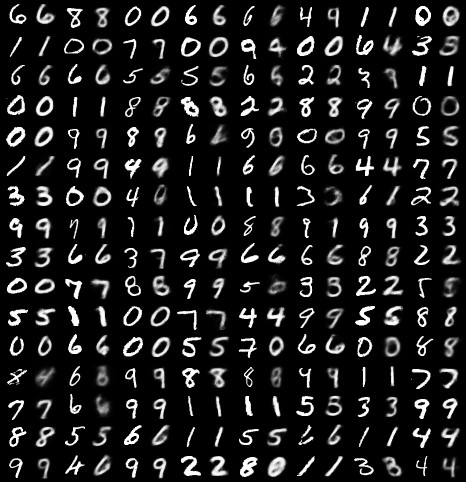 6 6 8 8 0 0 6 6 6 6 4 9 1 1 0 0
1 1 0 0 7 7 0 0 9 4 0 0 6 4 3 5
6 6 6 6 5 5 5 5 6 6 2 2 3 9 1 1
0 0 1 1 8 8 8 8 2 2 8 8 9 9 0 0
0 0 9 9 8 9 6 6 9 0 0 0 9 9 5 5
1 1 9 9 4 9 1 1 6 6 6 6 4 4 7 7
3 3 0 0 4 0 1 1 1 1 3 0 6 1 2 2
9 9 7 9 1 1 0 0 8 8 9 1 9 9 3 3
3 3 6 6 3 7 9 9 6 6 6 6 8 8 2 2
0 0 7 7 8 8 9 9 5 0 3 3 2 2 5 8
5 5 1 1 0 0 7 7 4 4 9 9 5 5 8 8
0 0 6 6 0 0 5 5 7 0 6 6 0 0 8 8
8 4 6 8 9 9 8 8 8 8 4 9 1 1 7 7
7 7 6 6 9 9 1 1 1 1 5 5 3 3 9 9
8 8 5 5 6 6 1 1 5 5 6 6 1 1 4 4
9 9 4 6 9 9 2 2 8 0 1 1 3 3 4 4